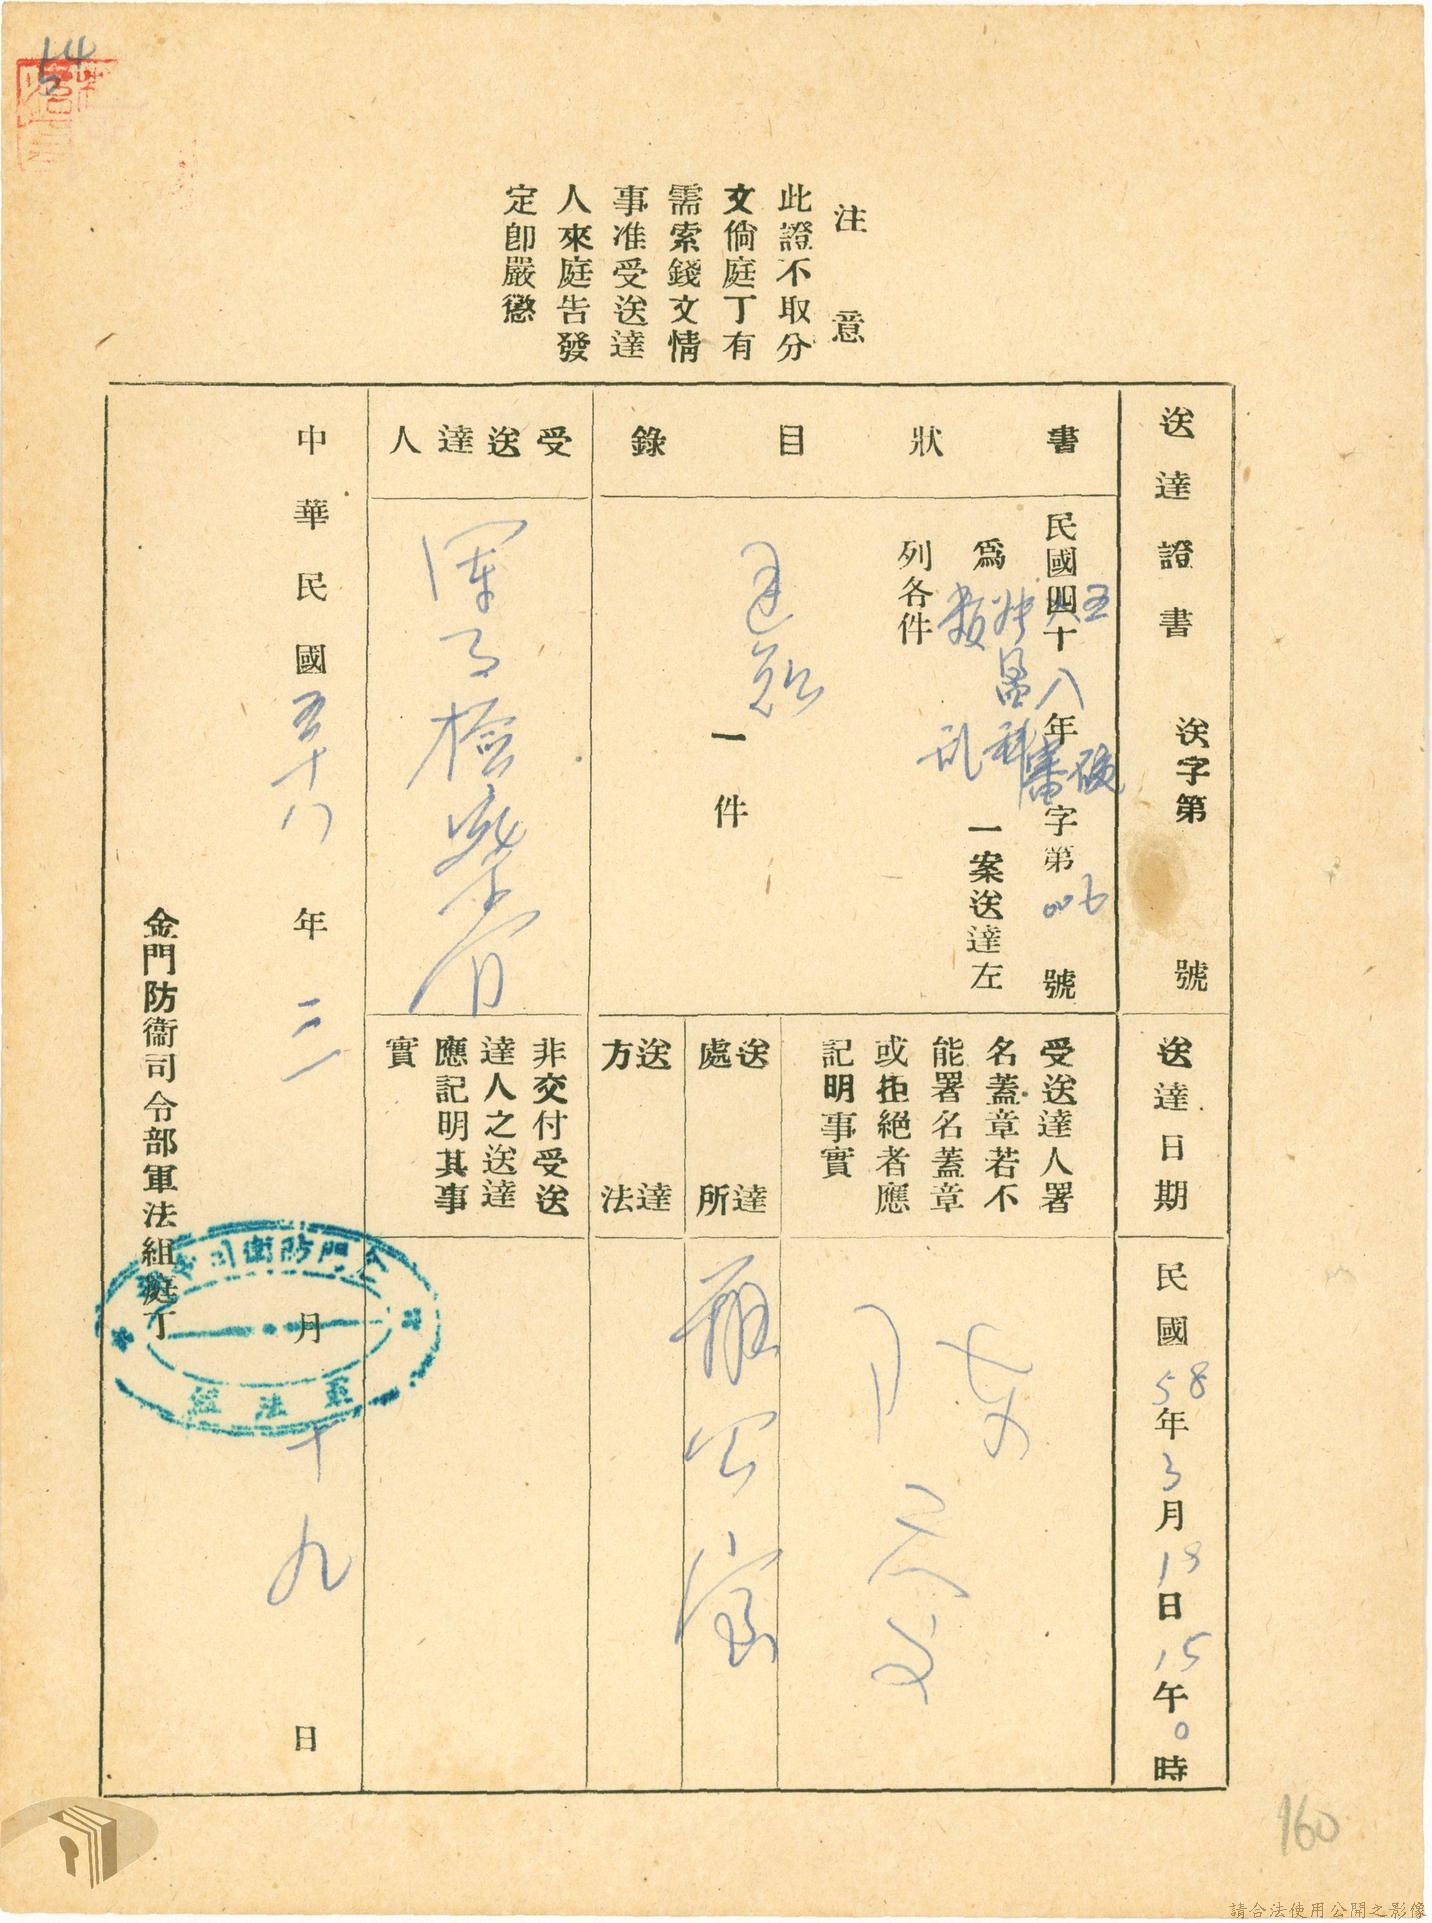 注意
此證不取分
文倘庭丁有
需索錢文情
事准受送達
人來庭告發
定卽嚴懲
送達證書 送字第 號
送達日期
民國58年3月18日15午0時
書狀目錄
民國四十八年審字第006號
為
一案送達左
列各件
一件
受送達人署
名蓋章若不
能署名蓋章
或拒絕者應
記明事實
送達處所
辦公室
送達方法
受送達人
軍事檢察官
非交付受送
達人之送達
應記明其事
實
中華民國五十八年三月十九日
金門防衞司令部軍法組庭丁
金門防衞司令部
軍法組
160
請合法使用公開之影像